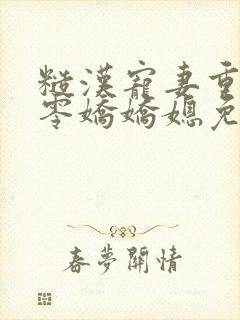 糙漢寵妻重
零嬌嬌媳免
春夢關情